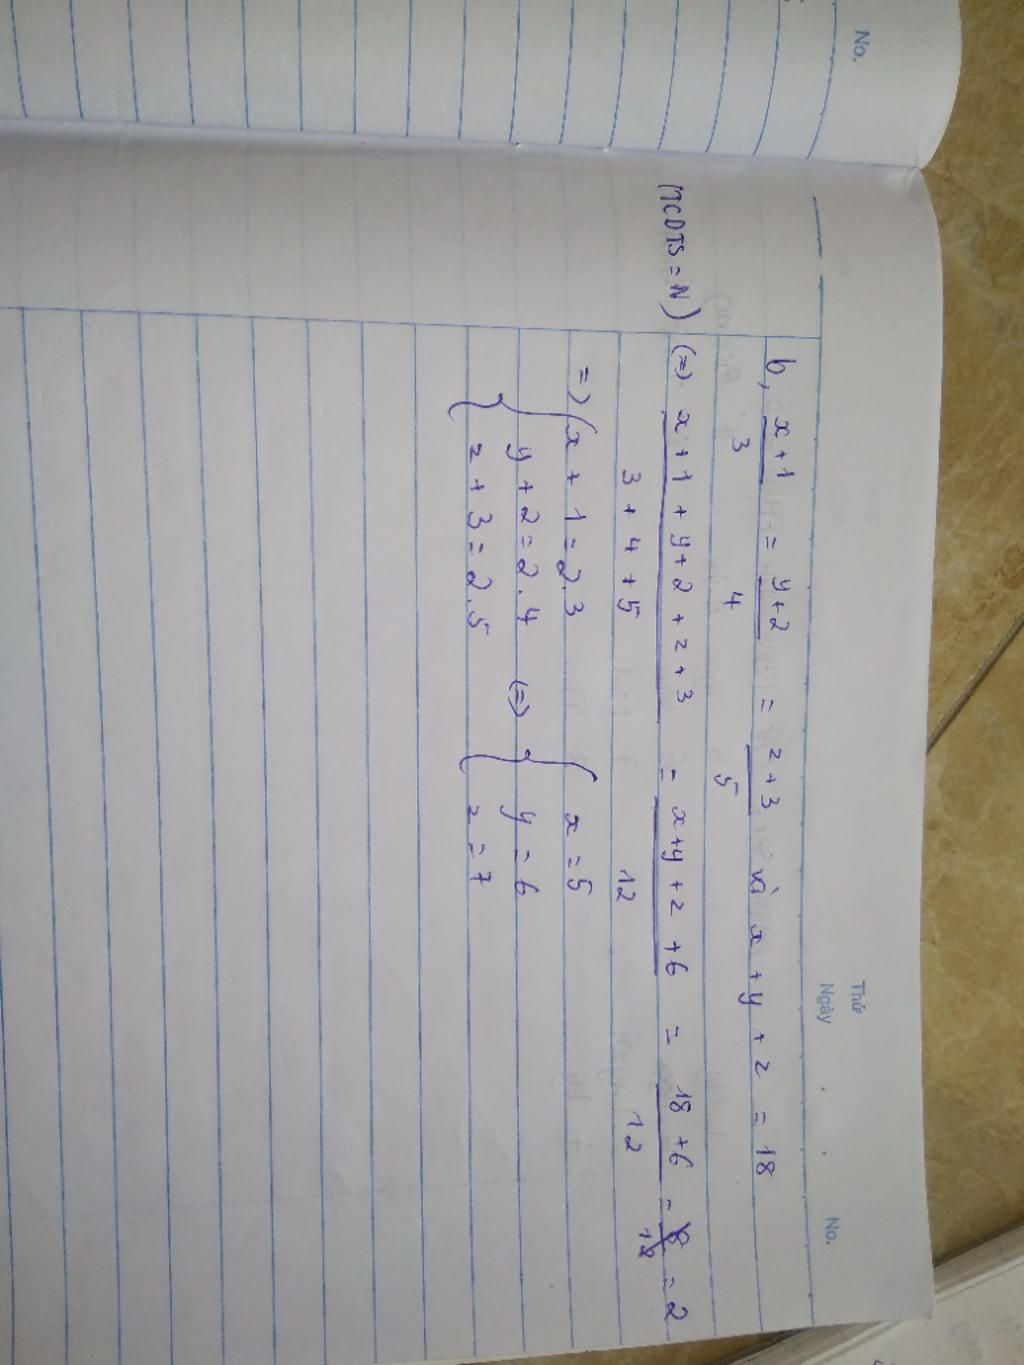 No.
Thứ
Ngày . . No.
b, x+1/3 = y+2/4 = z+3/5 và x + y + z = 18
(TCDTS = N) (=) x+1 + y+2 + z+3 / 3 + 4 + 5 = x+y + z +6 / 12 = 18 +6 / 12 = = 2
=) { x + 1 = 2.3 { x = 5
y + 2 = 2.4 (=) y = 6
z + 3 = 2.5 z = 7